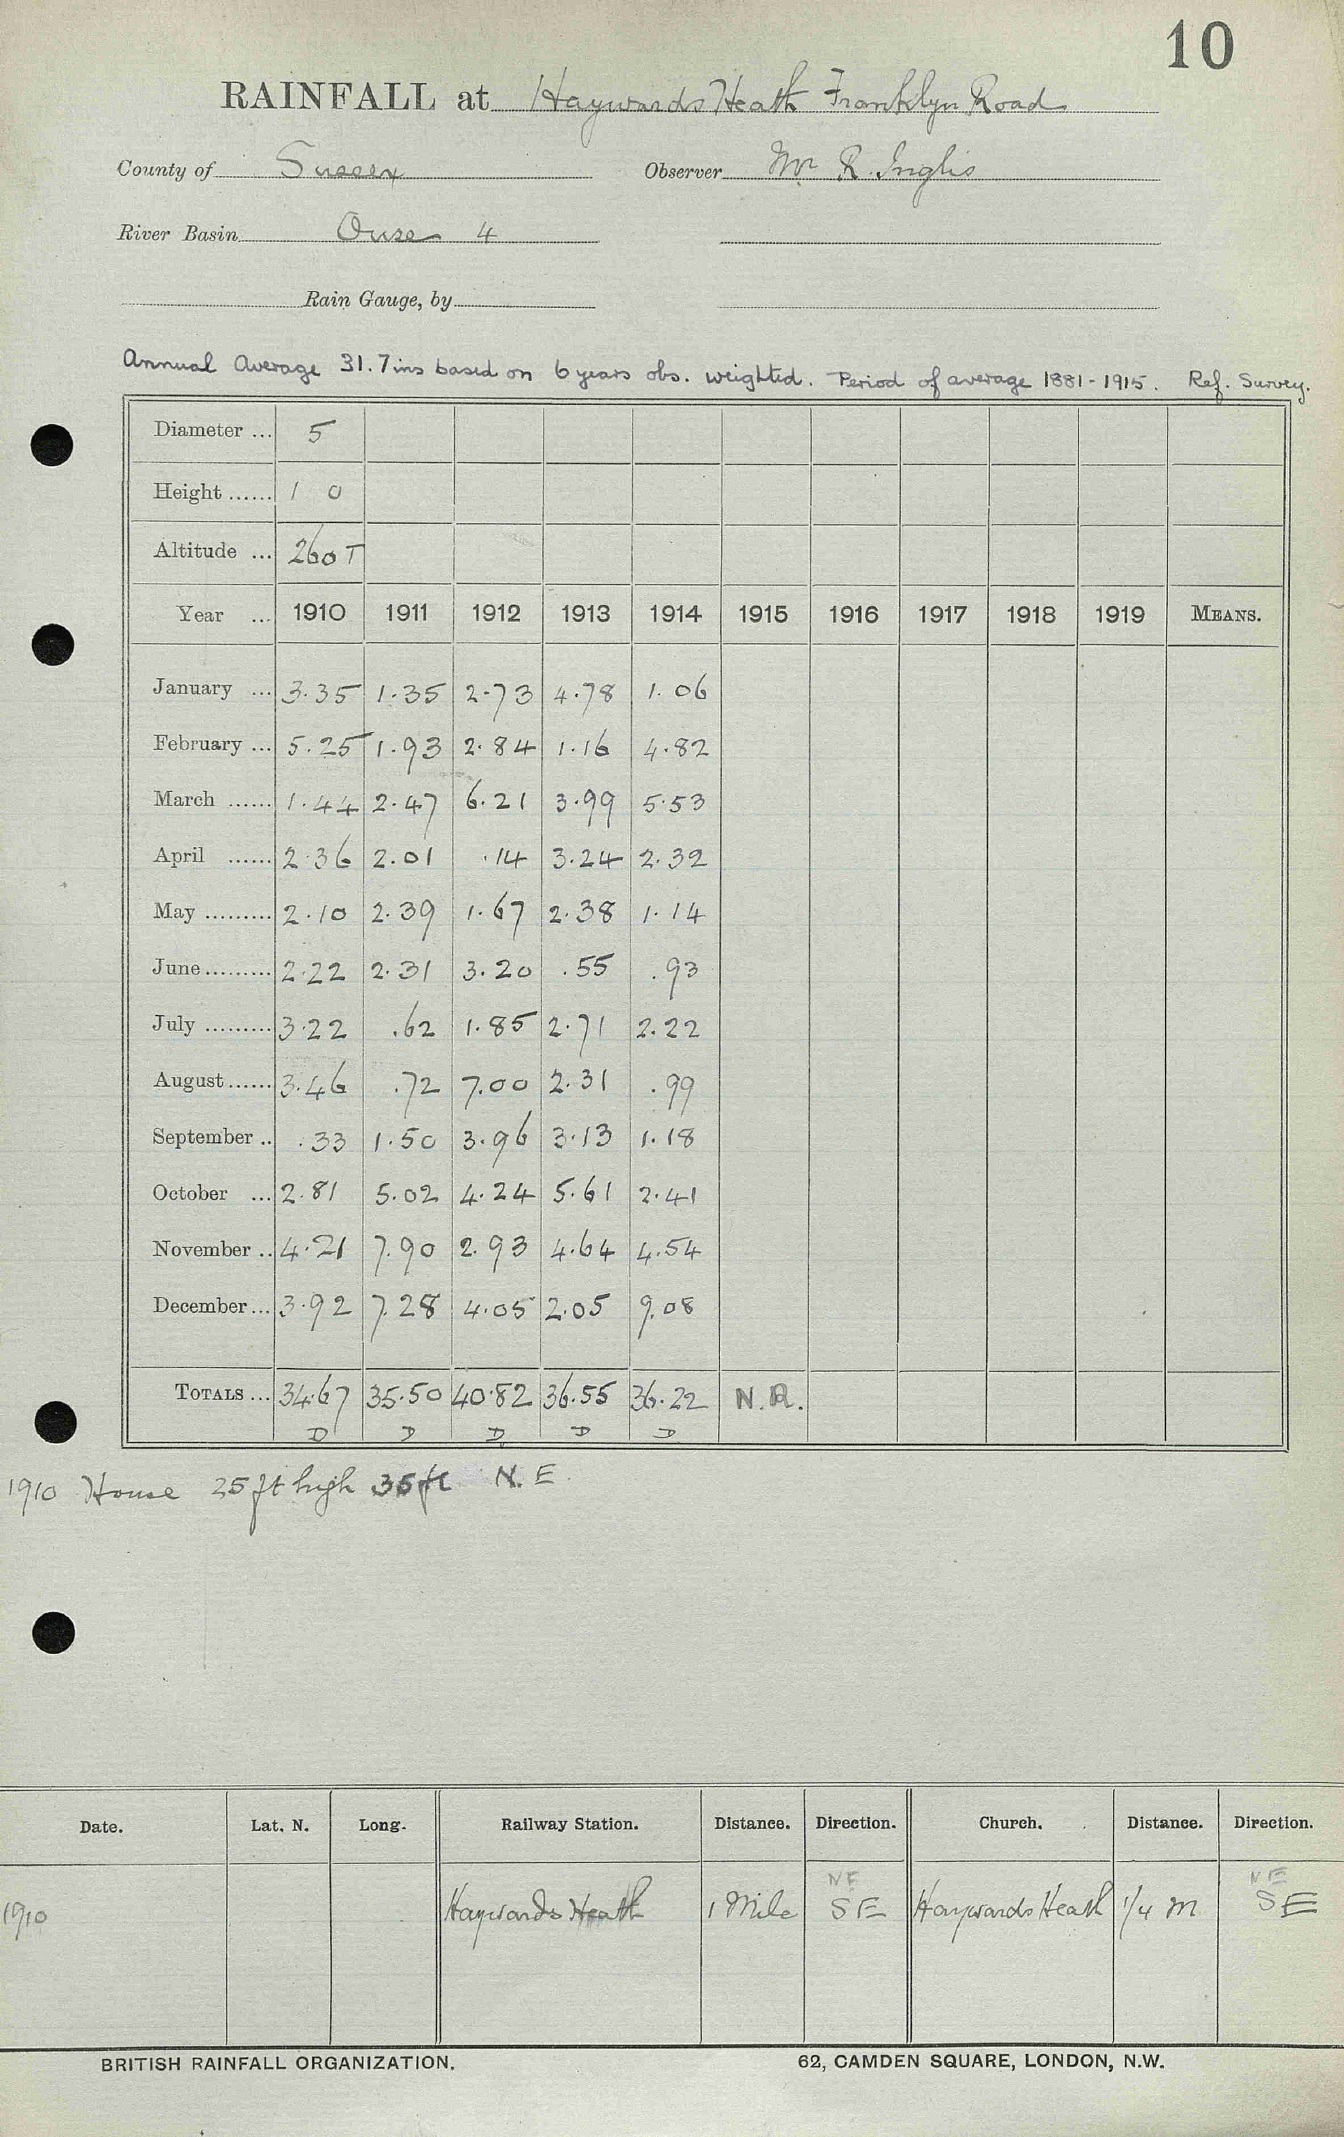 10
RAINFALL at Haywards Heath Franklyn Road
County of Sussex Observer Mr R. Inglis
River Basin Ouse 4
Rain Gauge, by
Annual Average 31.7 ins based on 6 years obs. weighted. Period of average 1881-1915. Ref. Survey.
Diameter ... 5
Height ...... 1 0
Altitude ... 260 T
Year ... 1910 1911 1912 1913 1914 1915 1916 1917 1918 1919 MEANS.
January ... 3.35 1.35 2.73 4.78 1.06
February ... 5.25 1.93 2.84 1.16 4.82
March ...... 1.44 2.47 6.21 3.99 5.53
April ...... 2.36 2.01 .14 3.24 2.32
May ......... 2.10 2.39 1.67 2.38 1.14
June ......... 2.22 2.31 3.20 .55 .93
July ......... 3.22 .62 1.85 2.71 2.22
August ...... 3.46 .72 7.00 2.31 .99
September .. .33 1.50 3.96 3.13 1.18
October ... 2.81 5.02 4.24 5.61 2.41
November .. 4.21 7.90 2.93 4.64 4.54
December ... 3.92 7.28 4.05 2.05 9.08
TOTALS ... 34.67 35.50 40.82 36.55 36.22 N.R.
D D D D D
1910 House 25 ft high 35 ft N.E.
Date. Lat. N. Long. Railway Station. Distance. Direction. Church. Distance. Direction.
NE NE
1910 Haywards Heath 1 Mile SE Haywards Heath 1/4 m SE
BRITISH RAINFALL ORGANIZATION. 62, CAMDEN SQUARE, LONDON, N.W.